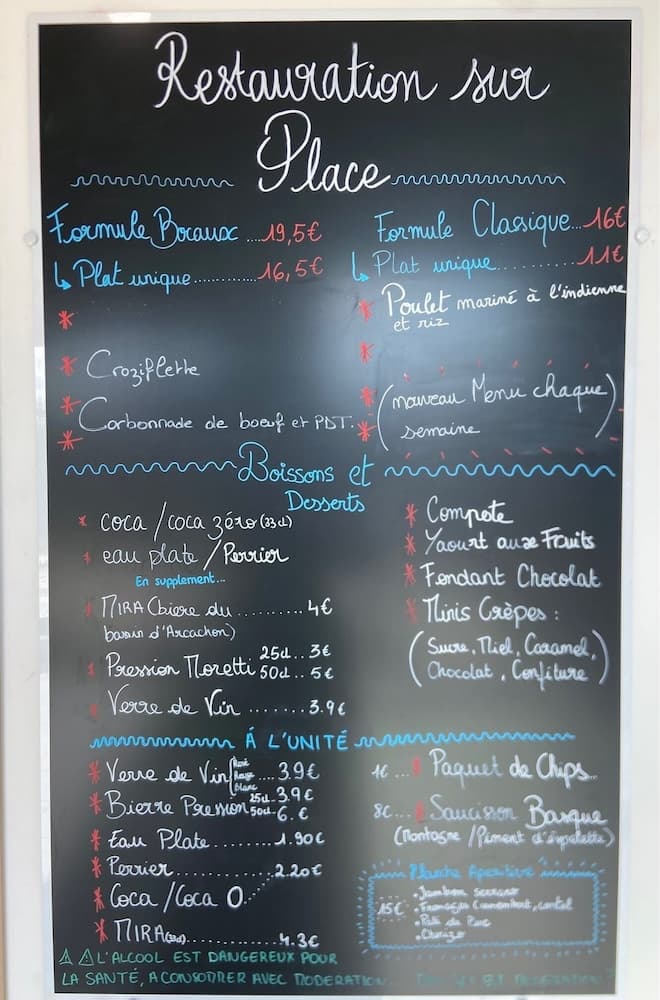 Restauration sur
Place
Formule Bocaux ....19,5€
↳ Plat unique..........16,5€
* 
* Croziflette
* Carbonnade de boeuf et PDT.
*
Formule Classique...16€
↳ Plat unique..........11€
* Poulet mariné à l'indienne
et riz
*
* (nouveau Menu chaque
* semaine)
Boissons et
Desserts
* coca / coca zéro (33cl)
* eau plate / Perrier
En supplement...
* MIRA (biere du .......... 4€
bassin d'Arcachon)
* Pression Moretti 25cl.. 3€
50cl.. 5€
* Verre de Vin ....... 3.9€
* Compote
* Yaourt aux Fruits
* Fondant Chocolat
* Minis Crèpes :
(Sucre, Miel, Caramel,
Chocolat, Confiture)
À L'UNITÉ
* Verre de Vin Rosé Rouge Blanc .... 3.9€
* Bierre Pression 25cl. 3.9€
50cl. 6.€
* Eau Plate.........1.90€
* Perrier...............2.20€
* Coca / Coca 0
* MIRA (33cl)...............4.3€
1€ ... * Paquet de Chips
8€ ... * Saucisson Basque
(Montagne / Piment d'espelette)
Planche Aperitive
15€
. Jambon serrano
. Fromages (camembert, cantal
. Paté de Porc
. Chorizo
⚠ ⚠ L'ALCOOL EST DANGEREUX POUR
LA SANTÉ, A CONSOMMER AVEC MODERATION